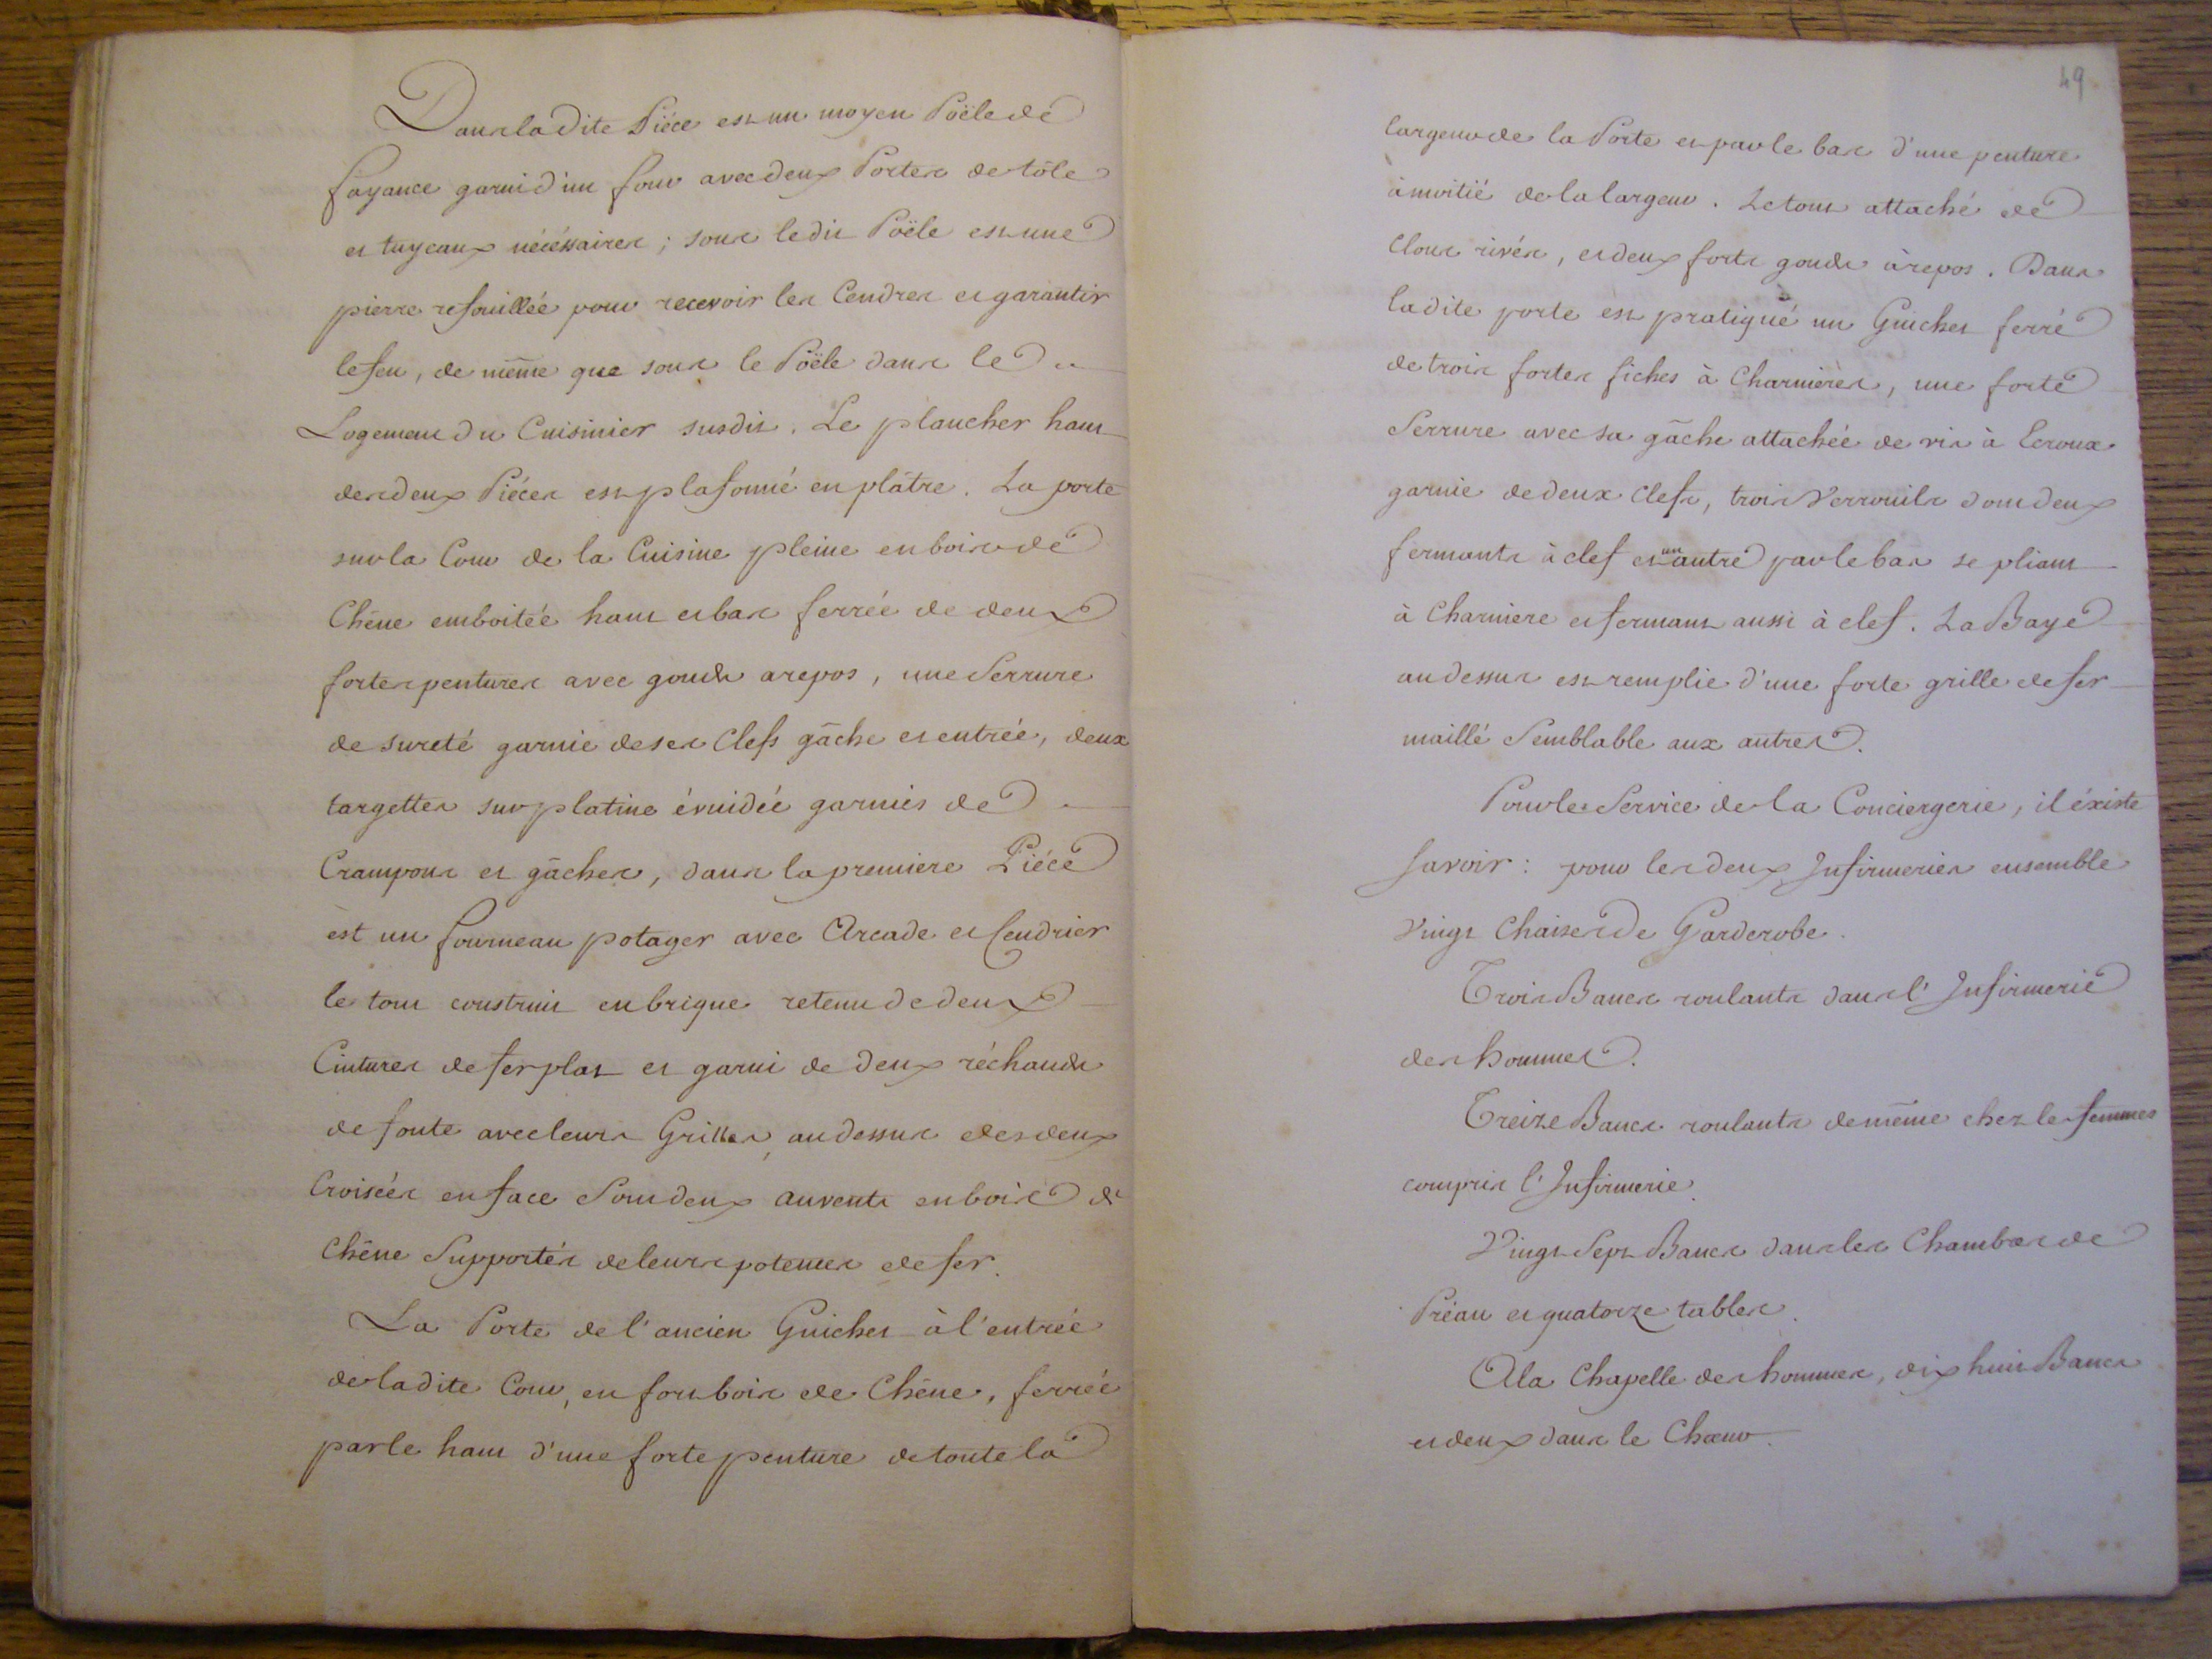 Dans ladite Piéce est un moyen Poële de
fayance garni d'un four avec deux Portes de tôle
et tuyeaux nécéssaires ; sous ledit Poële est une
pierre refouillée pour recevoir les Cendres et garantir
le feu, de même que sous le Poële dans le
Logement du Cuisinier susdit. Le plancher haut
des deux Piéces est plafonné en plâtre. La porte
sur la Cour de la Cuisine pleine en bois de
Chêne emboitée haut et bas ferrée de deux
fortes pentures avec gonds a repos, une Serrure
de sureté garnie de ses Clefs gâche et entrée, deux
targettes sur platine évuidée garnies de
Crampons et gâches, dans la premiere Piéce
est un fourneau potager avec Arcade et Cendrier
le tout construit en brique retenu de deux
Cintures de fer plat et garni de deux réchauds
de fonte avec leurs Grilles, au dessus des deux
Croisées en face Sont deux auvents en bois de
Chêne Supportés de leurs potences de fer.
La Porte de l'ancien Guichet à l'entrée
de ladite Cour, en fort bois de Chêne, ferrée
par le haut d'une forte penture de toute la
49
largeur de la Porte et par le bas d'une penture
à moitié de la largeur. Le tout attaché de
Clous rivés, et deux forts gonds à repos. Dans
ladite porte est pratiqué un Guichet ferré
de trois fortes fiches à Charnières, une forte
Serrure avec sa gâche attachée de vis à Ecroux
garnie de deux Clefs, trois Verrouils dont deux
fermants à clef et un autre par le bas se pliant
à Charniere et fermant aussi à clef. La Baye
au dessus est remplie d'une forte grille de fer
maillé Semblable aux autres.
Pour le Service de la Conciergerie, il éxiste
Savoir : pour les deux Infirmeries ensemble
Vingt Chaises de Garderobe.
Trois Bancs roulants dans l'Infirmerie
des hommes.
Treize Bancs roulants de même chez les femmes
compris l'Infirmerie.
Vingt Sept Bancs dans les Chambres de
Préau et quatorze tables.
A la Chapelle des hommes, dix huit Bancs
et deux dans le Chœur.